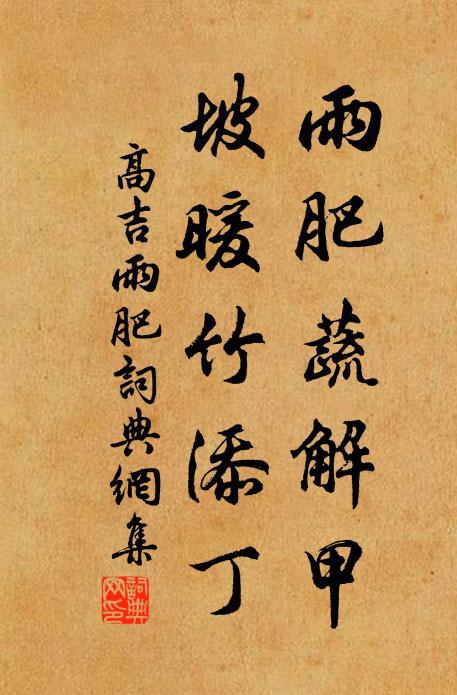 雨肥蔬解甲
坡暖竹添丁
高吉雨肥詞典網集
詞典網印